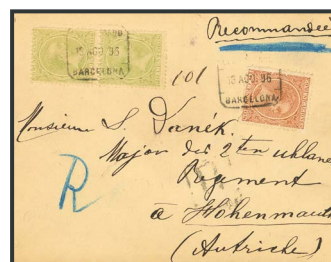 Recommandée
13 AGO. 96
BARCELONA
101
13 AGO. 96
BARCELONA
Monsieur S. Vanék.
Major des 2ten uhlane
Regiment
R
à Hohenmaut
(Autriche)